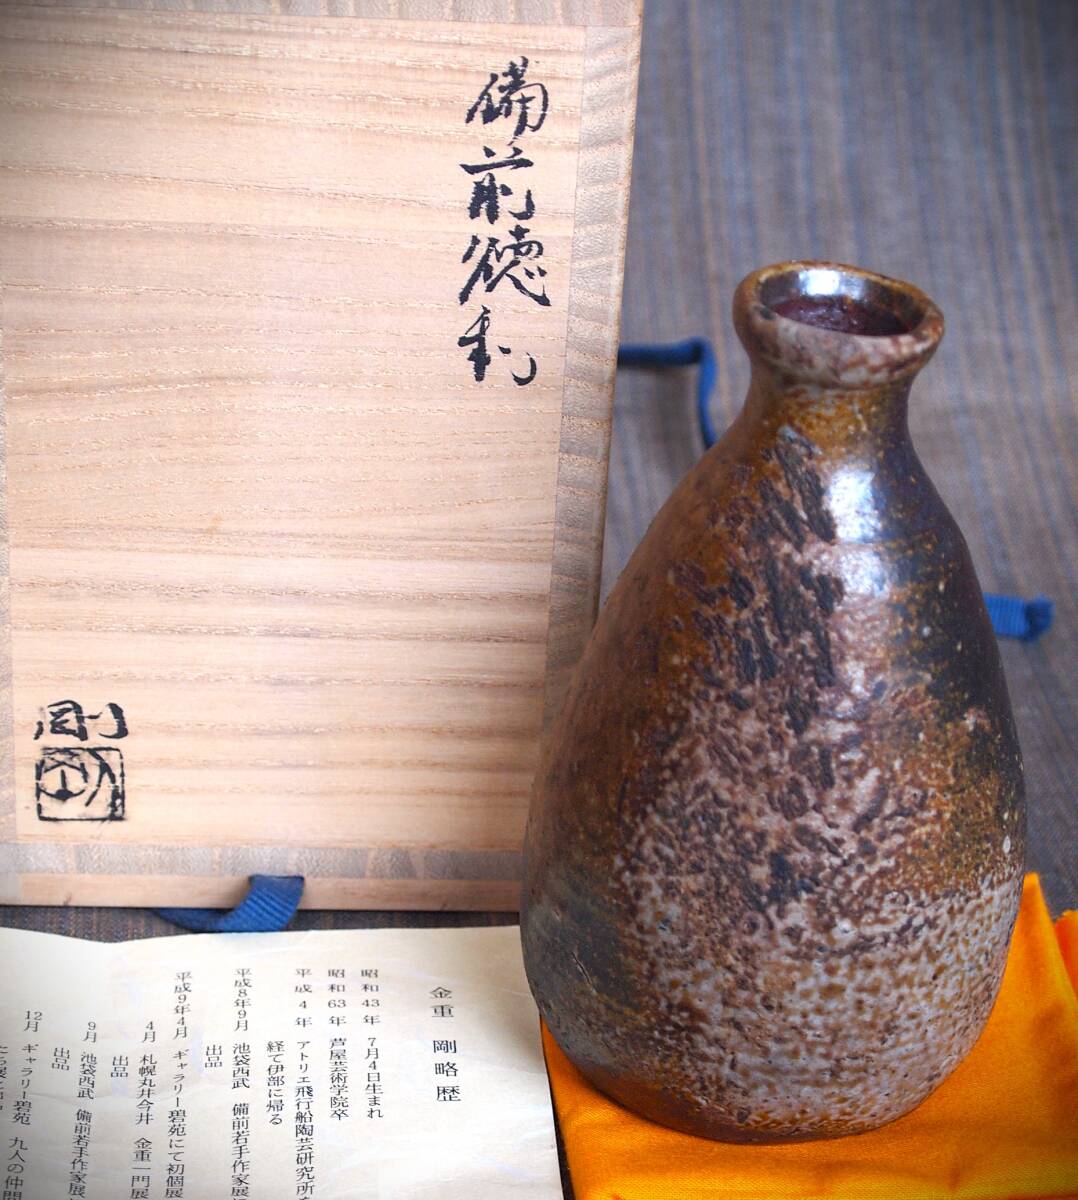 備前徳利
剛
金重 剛略歴
昭和43年 7月4日生まれ
昭和63年 芦屋芸術学院卒
平成4年 アトリエ飛行船陶芸研究所を
経て伊部に帰る
平成8年9月 池袋西武 備前若手作家展に
出品
平成9年4月 ギャラリー碧苑にて初個展
4月 札幌丸井今井 金重一門展
出品
9月 池袋西武 備前若手作家展に
出品
12月 ギャラリー碧苑 九人の仲間